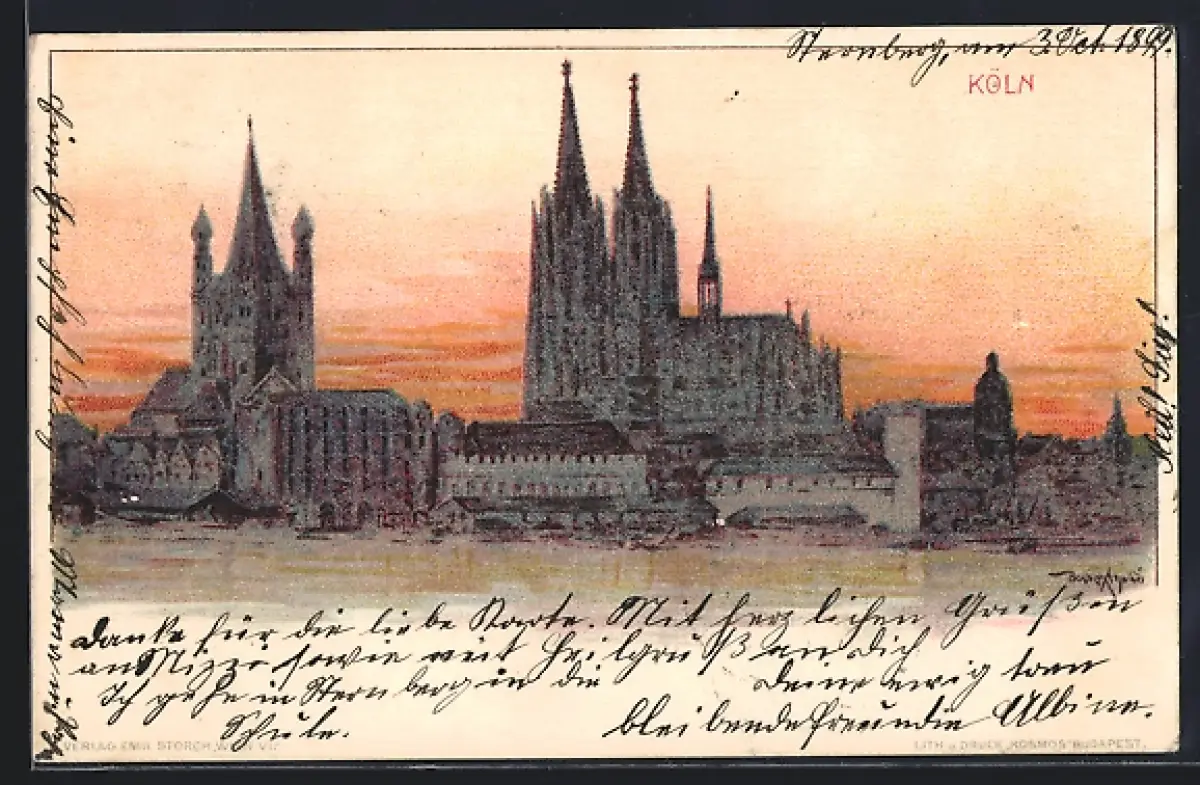 Sternberg, am 3. Oct. 1899.
KÖLN
Danke für die liebe Karte. Mit herzlichen Grüßen
an Mizzi sowie mit Heilgruß an Dich
Ich gehe in Sternberg in die
Schule.
Deine ewig treu
bleibende Freundin Albine.
VERLAG EMIL STORCH, WIEN VII.
LITH. u. DRUCK „KOSMOS" BUDAPEST.